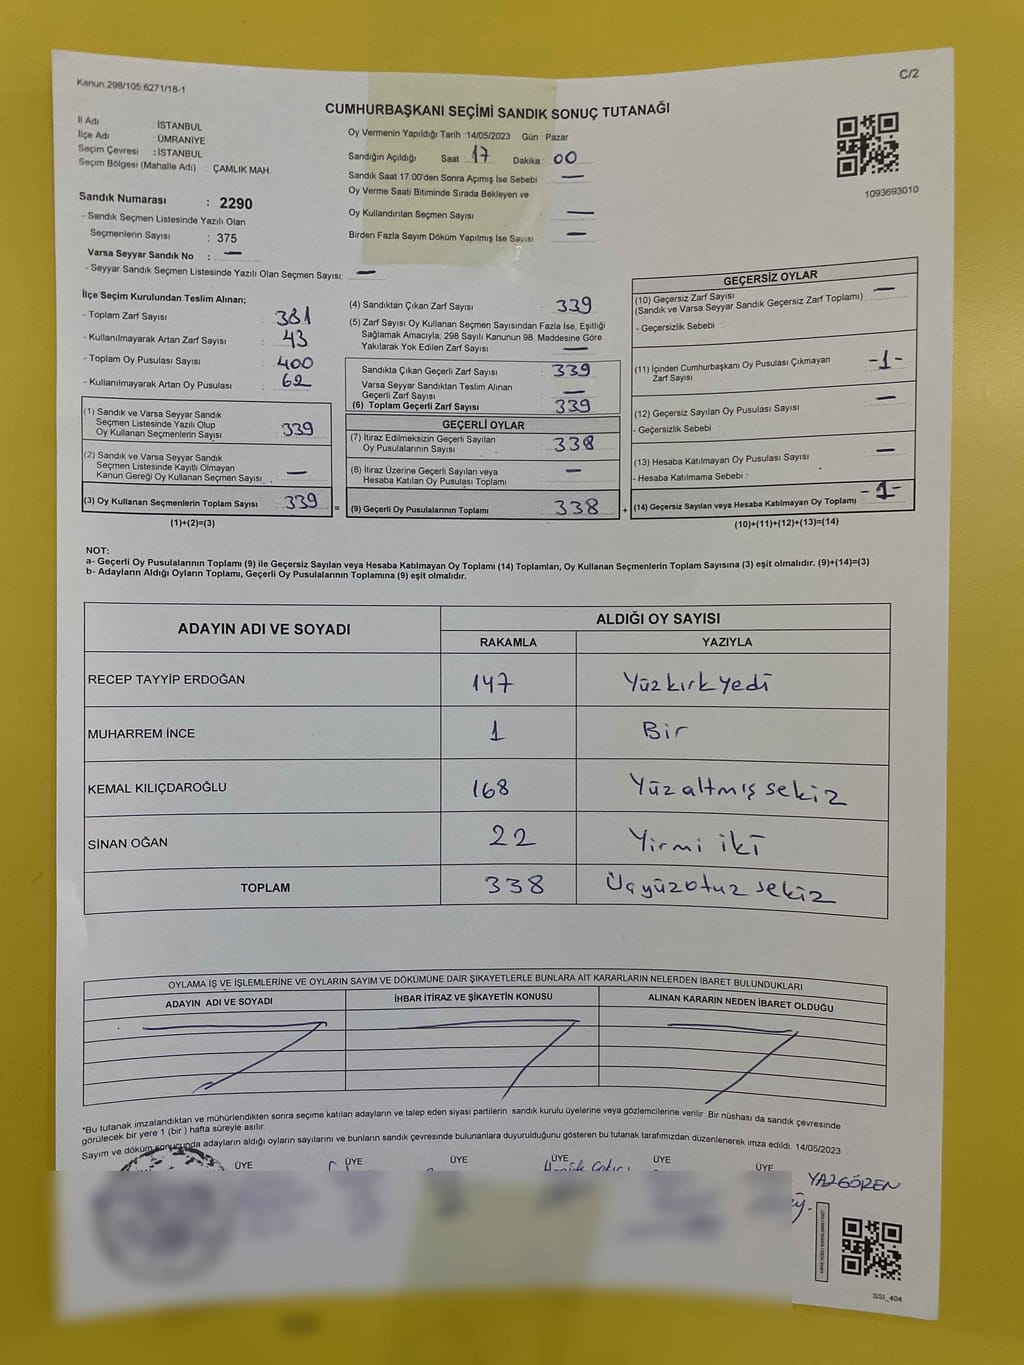 Kanun:298/105,6271/18-1
C/2
CUMHURBAŞKANI SEÇİMİ SANDIK SONUÇ TUTANAĞI
İl Adı : İSTANBUL
İlçe Adı : ÜMRANİYE
Seçim Çevresi : İSTANBUL
Seçim Bölgesi (Mahalle Adı) : ÇAMLIK MAH
Sandık Numarası : 2290
- Sandık Seçmen Listesinde Yazılı Olan
Seçmenlerin Sayısı : 375
Varsa Seyyar Sandık No : —
- Seyyar Sandık Seçmen Listesinde Yazılı Olan Seçmen Sayısı: —
Oy Vermenin Yapıldığı Tarih : 14/05/2023 Gün : Pazar
Sandığın Açıldığı Saat : 17 Dakika : 00
Sandık Saat 17:00'den Sonra Açımış İse Sebebi : —
Oy Verme Saati Bitiminde Sırada Bekleyen ve
Oy Kullandırılan Seçmen Sayısı : —
Birden Fazla Sayım Döküm Yapılmış İse Sayısı : —
1093693010
İlçe Seçim Kurulundan Teslim Alınan;
- Toplam Zarf Sayısı : 381
- Kullanılmayarak Artan Zarf Sayısı : 43
- Toplam Oy Pusulası Sayısı : 400
- Kullanılmayarak Artan Oy Pusulası : 62
(1) Sandık ve Varsa Seyyar Sandık
Seçmen Listesinde Yazılı Olup
Oy Kullanan Seçmenlerin Sayısı : 339
(2) Sandık ve Varsa Seyyar Sandık
Seçmen Listesinde Kayıtlı Olmayan
Kanun Gereği Oy Kullanan Seçmen Sayısı : —
(3) Oy Kullanan Seçmenlerin Toplam Sayısı : 339
(1)+(2)=(3)
(4) Sandıktan Çıkan Zarf Sayısı : 339
(5) Zarf Sayısı Oy Kullanan Seçmen Sayısından Fazla İse, Eşitliği
Sağlamak Amacıyla, 298 Sayılı Kanunun 98. Maddesine Göre
Yakılarak Yok Edilen Zarf Sayısı : —
Sandıkta Çıkan Geçerli Zarf Sayısı : 339
Varsa Seyyar Sandıktan Teslim Alınan
Geçerli Zarf Sayısı : —
(6) Toplam Geçerli Zarf Sayısı : 339
GEÇERLİ OYLAR
(7) İtiraz Edilmeksizin Geçerli Sayılan
Oy Pusulalarının Sayısı : 338
(8) İtiraz Üzerine Geçerli Sayılan veya
Hesaba Katılan Oy Pusulası Toplamı : —
= (9) Geçerli Oy Pusulalarının Toplamı : 338 +
GEÇERSİZ OYLAR
(10) Geçersiz Zarf Sayısı : —
(Sandık ve Varsa Seyyar Sandık Geçersiz Zarf Toplamı)
- Geçersizlik Sebebi :
(11) İçinden Cumhurbaşkanı Oy Pusulası Çıkmayan
Zarf Sayısı : -1-
(12) Geçersiz Sayılan Oy Pusulası Sayısı : —
- Geçersizlik Sebebi :
(13) Hesaba Katılmayan Oy Pusulası Sayısı : —
- Hesaba Katılmama Sebebi :
(14) Geçersiz Sayılan veya Hesaba Katılmayan Oy Toplamı : -1-
(10)+(11)+(12)+(13)=(14)
NOT:
a- Geçerli Oy Pusulalarının Toplamı (9) ile Geçersiz Sayılan veya Hesaba Katılmayan Oy Toplamı (14) Toplamları, Oy Kullanan Seçmenlerin Toplam Sayısına (3) eşit olmalıdır. (9)+(14)=(3)
b- Adayların Aldığı Oyların Toplamı, Geçerli Oy Pusulalarının Toplamına (9) eşit olmalıdır.
ADAYIN ADI VE SOYADI ALDIĞI OY SAYISI
RAKAMLA YAZIYLA
RECEP TAYYİP ERDOĞAN 147 Yüzkırkyedi
MUHARREM İNCE 1 Bir
KEMAL KILIÇDAROĞLU 168 Yüzaltmış sekiz
SİNAN OĞAN 22 Yirmi iki
TOPLAM 338 Üçyüzotuz sekiz
OYLAMA İŞ VE İŞLEMLERİNE VE OYLARIN SAYIM VE DÖKÜMÜNE DAİR ŞİKAYETLERLE BUNLARA AİT KARARLARIN NELERDEN İBARET BULUNDUKLARI
ADAYIN ADI VE SOYADI İHBAR İTİRAZ VE ŞİKAYETİN KONUSU ALINAN KARARIN NEDEN İBARET OLDUĞU
*Bu tutanak imzalandıktan ve mühürlendikten sonra seçime katılan adayların ve talep eden siyasi partilerin sandık kurulu üyelerine veya gözlemcilerine verilir. Bir nüshası da sandık çevresinde
görülecek bir yere 1 (bir) hafta süreyle asılır.
Sayım ve döküm sonucunda adayların aldığı oyların sayılarını ve bunların sandık çevresinde bulunanlara duyurulduğunu gösteren bu tutanak tarafımızdan düzenlenerek imza edildi. 14/05/2023
ÜYE ÜYE ÜYE ÜYE ÜYE ÜYE
YAZGÖREN
SSI_404